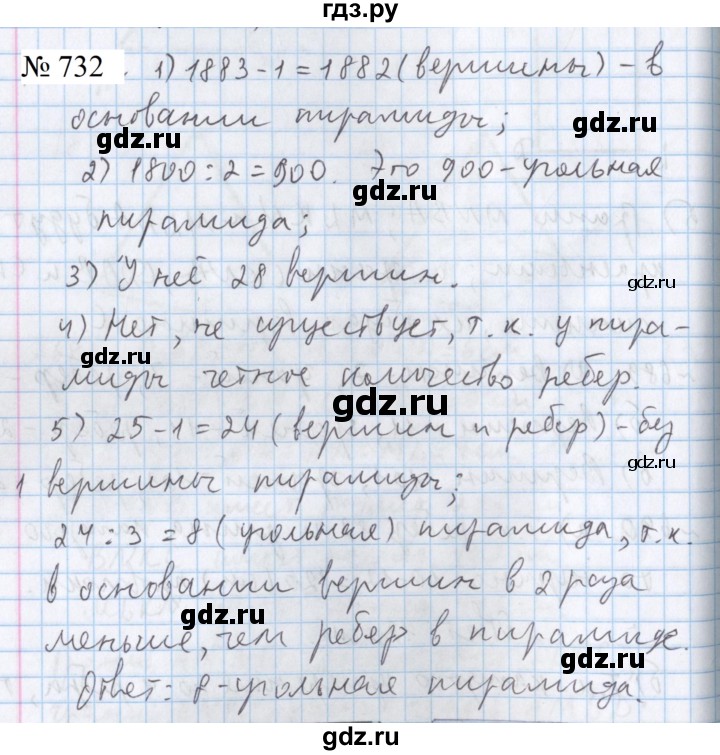 гдз.ру
№ 732. 1) 1883-1=1882 (вершины) - в
основании пирамиды;
gdz.ru
gdz.ru
2) 1800:2=900. Это 900-угольная
gdz.ru
пирамида;
gdz.ru
3) У неё 28 вершин.
gdz.ru
4) Нет, не существует, т.к. у пира-
gdz.ru
миды четное количество ребер.
gdz.ru
5) 25-1=24 (вершин и ребер) - без
gdz.ru
1 вершины пирамиды;
gdz.ru
24:3=8 (угольная) пирамида, т.к.
gdz.ru
в основании вершин в 2 раза
gdz.ru
меньше, чем ребер в пирамиде.
gdz.ru
Ответ: 8-угольная пирамида.
gdz.ru